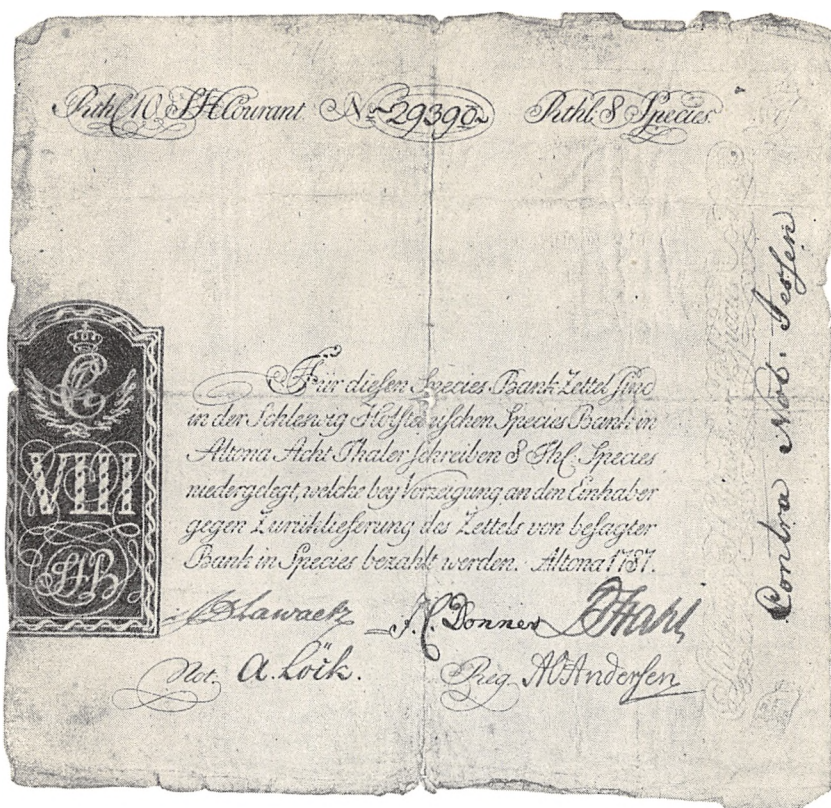 Rthl 10 SHCourant № 29390 Rthl: 8 Species
VIII
SHB
Für diesen Species Bank Zettel sind
in der Schleswig Holsteinischen Species Bank in
Altona Acht Thaler schreiben 8 Thl. Species
niedergelegt, welche bey Vorzeigung, an den Einhaber
gegen Zurüklieferung des Zettels von besagter
Bank in Species bezahlt werden. Altona 1787.
Lawaetz J. C. Donner Stahl
Not. A. Löck. Reg. Andersen
Contra Not. Jessen